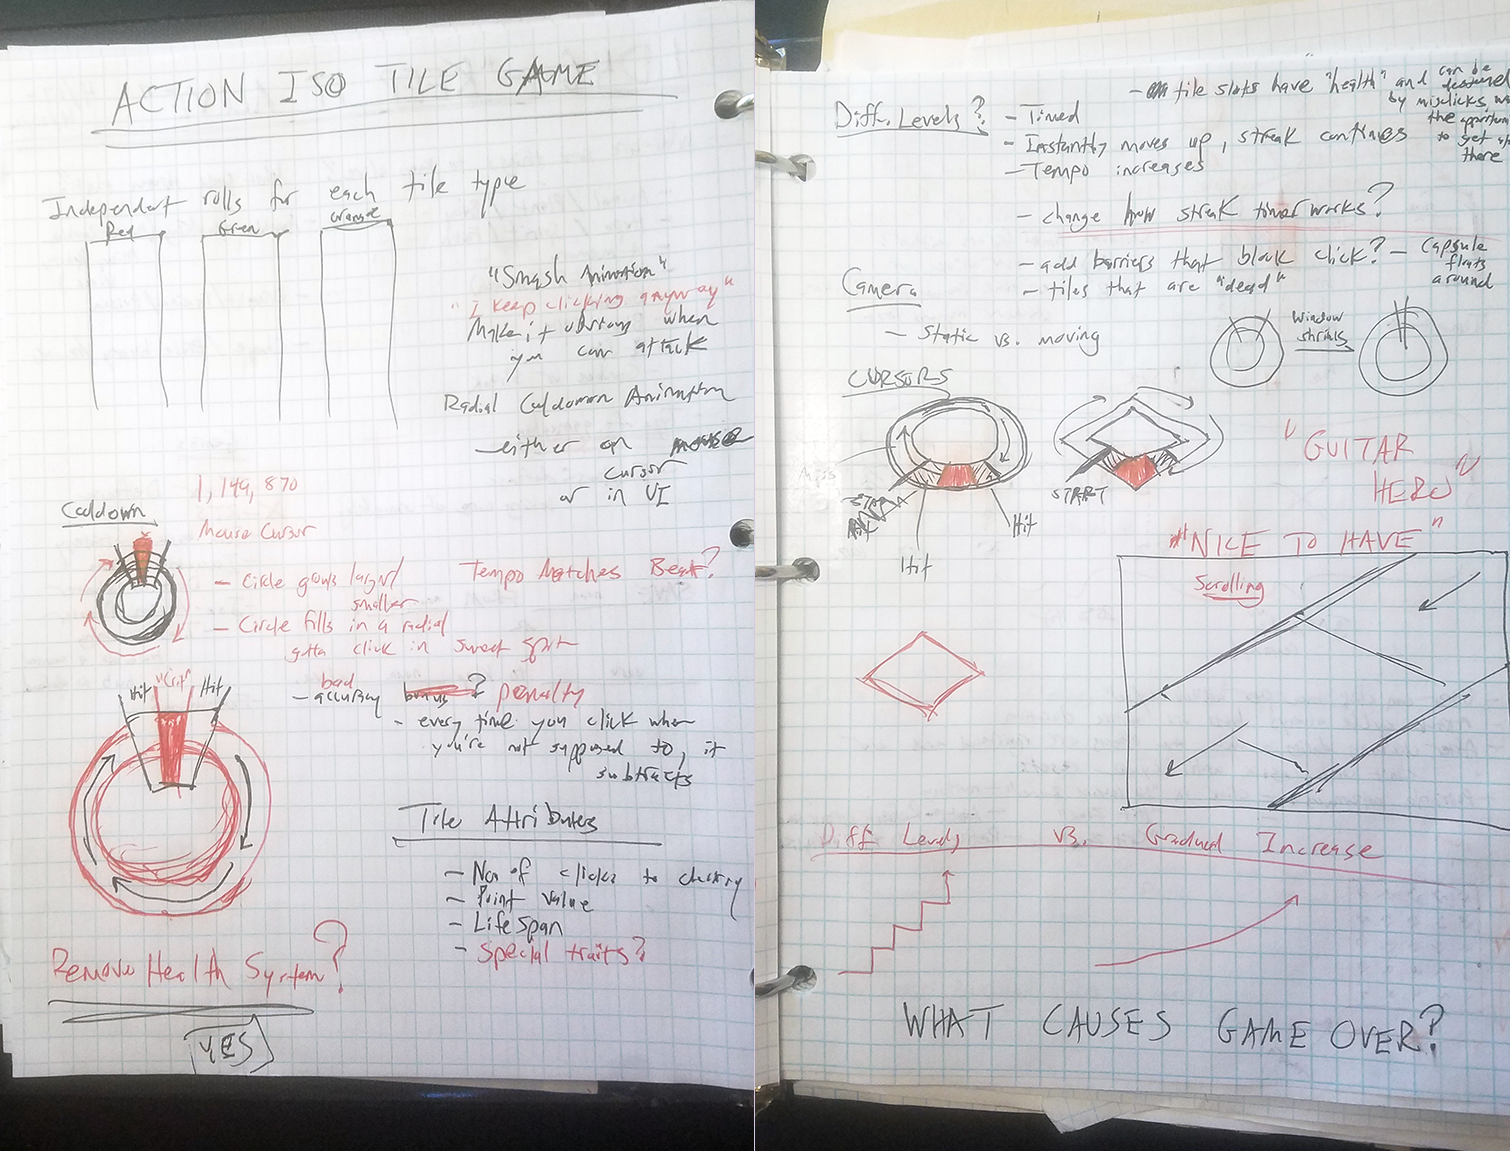 ACTION ISO TILE GAME
Independent rolls for each tile type
Red Green Orange
"Smash Animation"
"I keep clicking anyway"
Make it obvious when
you can attack
Radial Cooldown Animation
- either on mouse
cursor
or in UI
1,149,870
Cooldown
Mouse Cursor
- Circle grows larger/
smaller
- Circle fills in a radial
gotta click in sweet spot
Tempo Matches Beat?
Hit "Crit" Hit
bad
- accuracy bonus? penalty
- every time you click when
you're not supposed to, it
subtracts
Tile Attributes
- No of clicks to destroy
- Point Value
- Life Span
- Special traits?
Remove Health System?
YES
Diff. Levels?
- Timed
- Instantly moves up, streak continues
- Tempo increases
- tile slots have "health" and can be
destroyed
by misclicks,
the
to get
there
- change how streak timer works?
- add barriers that block click? - Capsule
floats
around
- tiles that are "dead"
Camera
- Static vs. moving
Window
shrinks
CURSORS
START
Hit
Hit
START
"GUITAR
HERO"
"NICE TO HAVE"
Scrolling
Diff Levels vs. Gradual Increase
WHAT CAUSES GAME OVER?